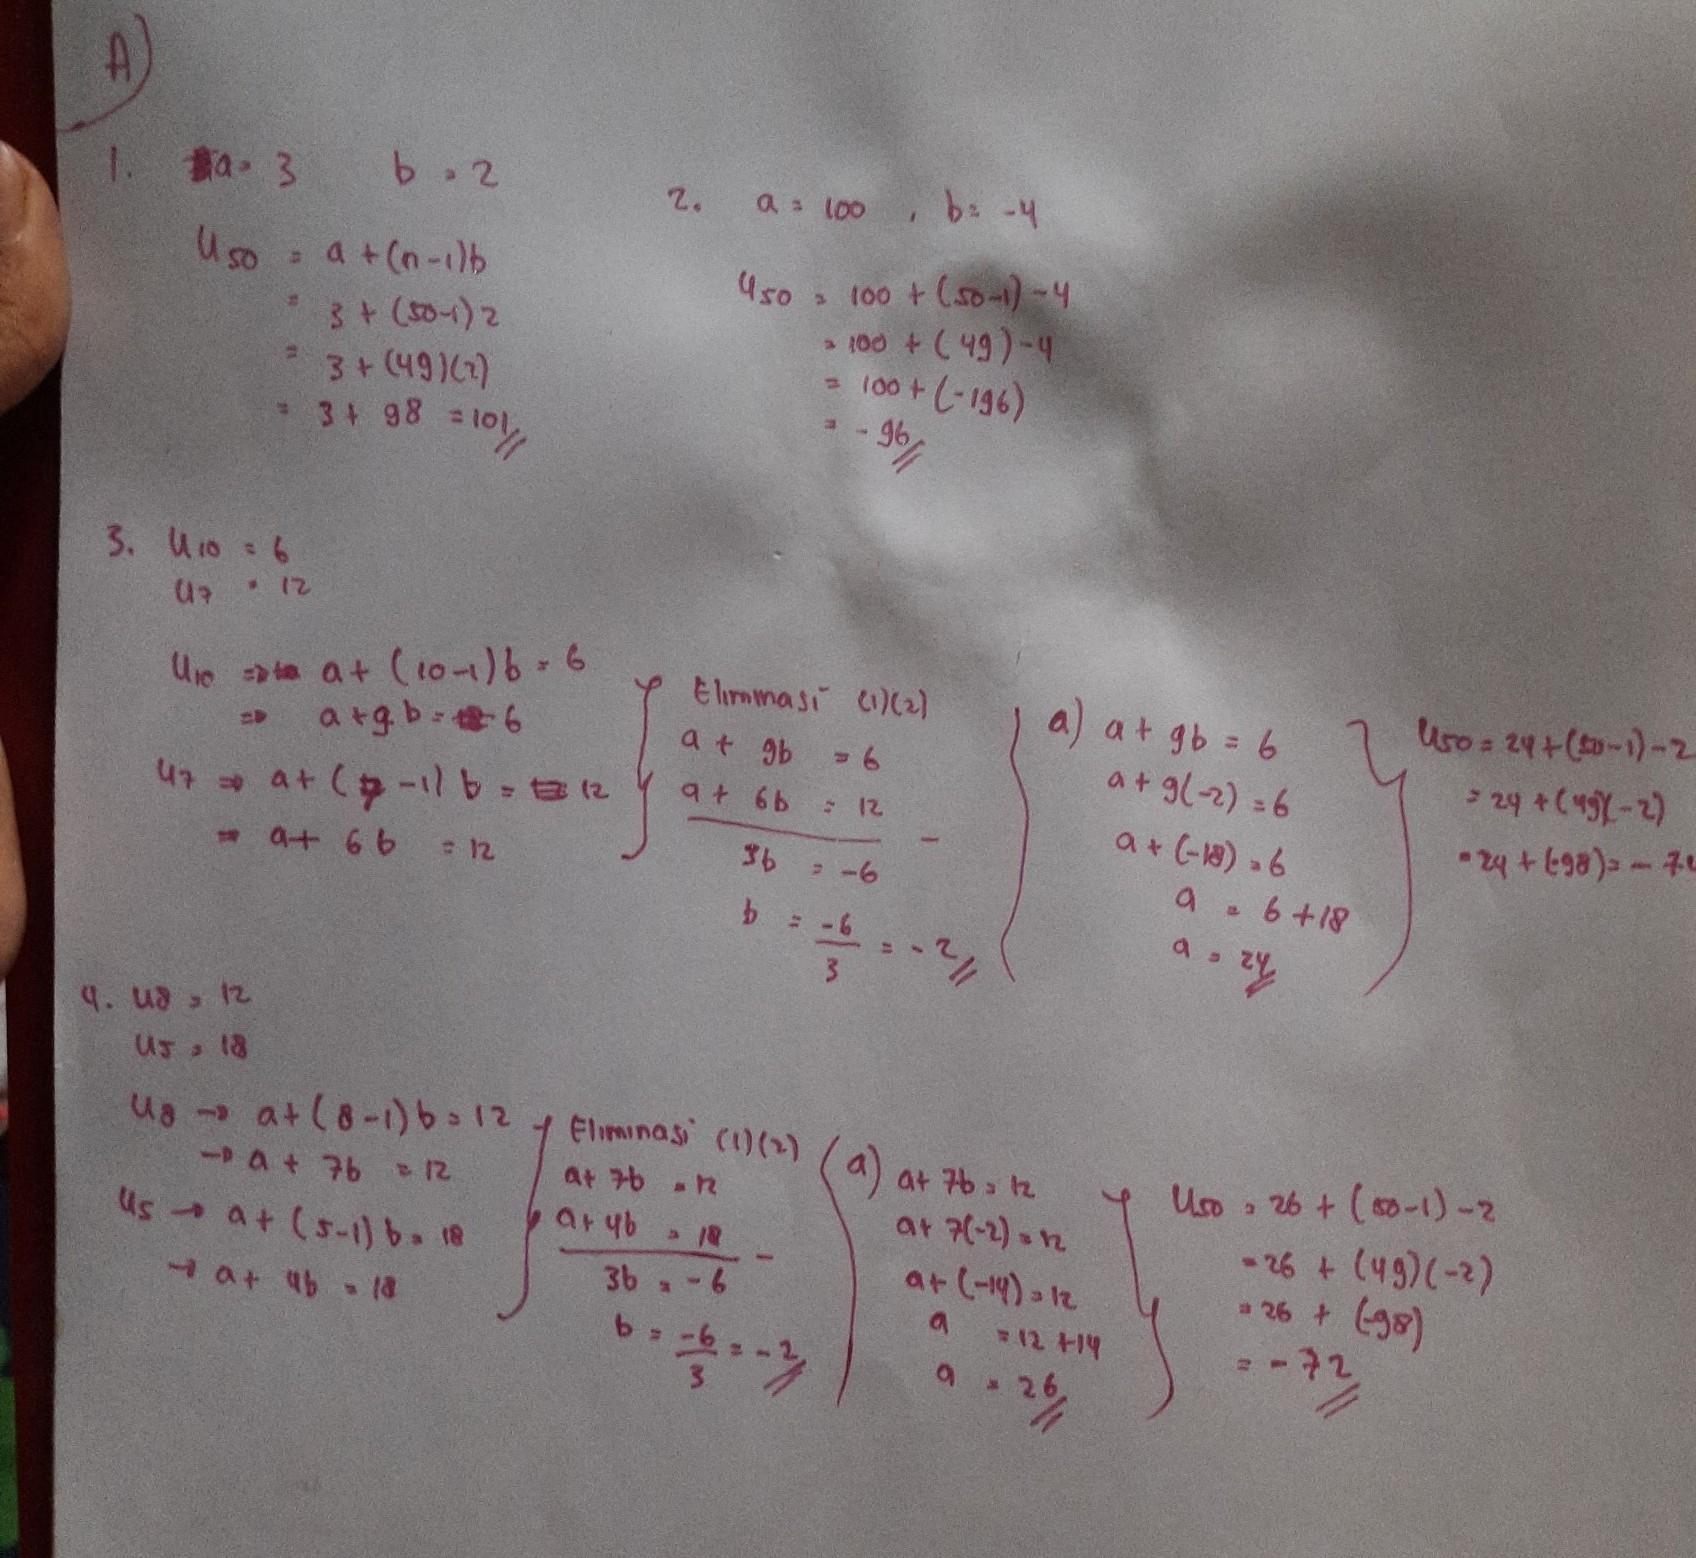 A)
1. a = 3 b = 2
U50 = a + (n-1)b
= 3 + (50-1)2
= 3 + (49)(2)
= 3 + 98 = 101
2. a = 100 , b = -4
U50 = 100 + (50-1)-4
= 100 + (49)-4
= 100 + (-196)
= -96
3. U10 = 6
U7 = 12
U10 => a + (10-1)b = 6
=> a + 9b = 6
U7 => a + (7-1)b = 12
= a + 6b = 12
Eliminasi (1)(2)
a + 9b = 6
a + 6b = 12 -
3b = -6
b = -6/3 = -2
a) a + 9b = 6
a + 9(-2) = 6
a + (-18) = 6
a = 6 + 18
a = 24
U50 = 24 + (50-1)-2
= 24 + (49)(-2)
= 24 + (-98) = -74
4. U8 = 12
U5 = 18
U8 → a + (8-1)b = 12
→ a + 7b = 12
U5 → a + (5-1)b = 18
→ a + 4b = 18
Eliminasi (1)(2)
a + 7b = 12
a + 4b = 18 -
3b = -6
b = -6/3 = -2
a) a + 7b = 12
a + 7(-2) = 12
a + (-14) = 12
a = 12 + 14
a = 26
U50 = 26 + (50-1)-2
= 26 + (49)(-2)
= 26 + (-98)
= -72